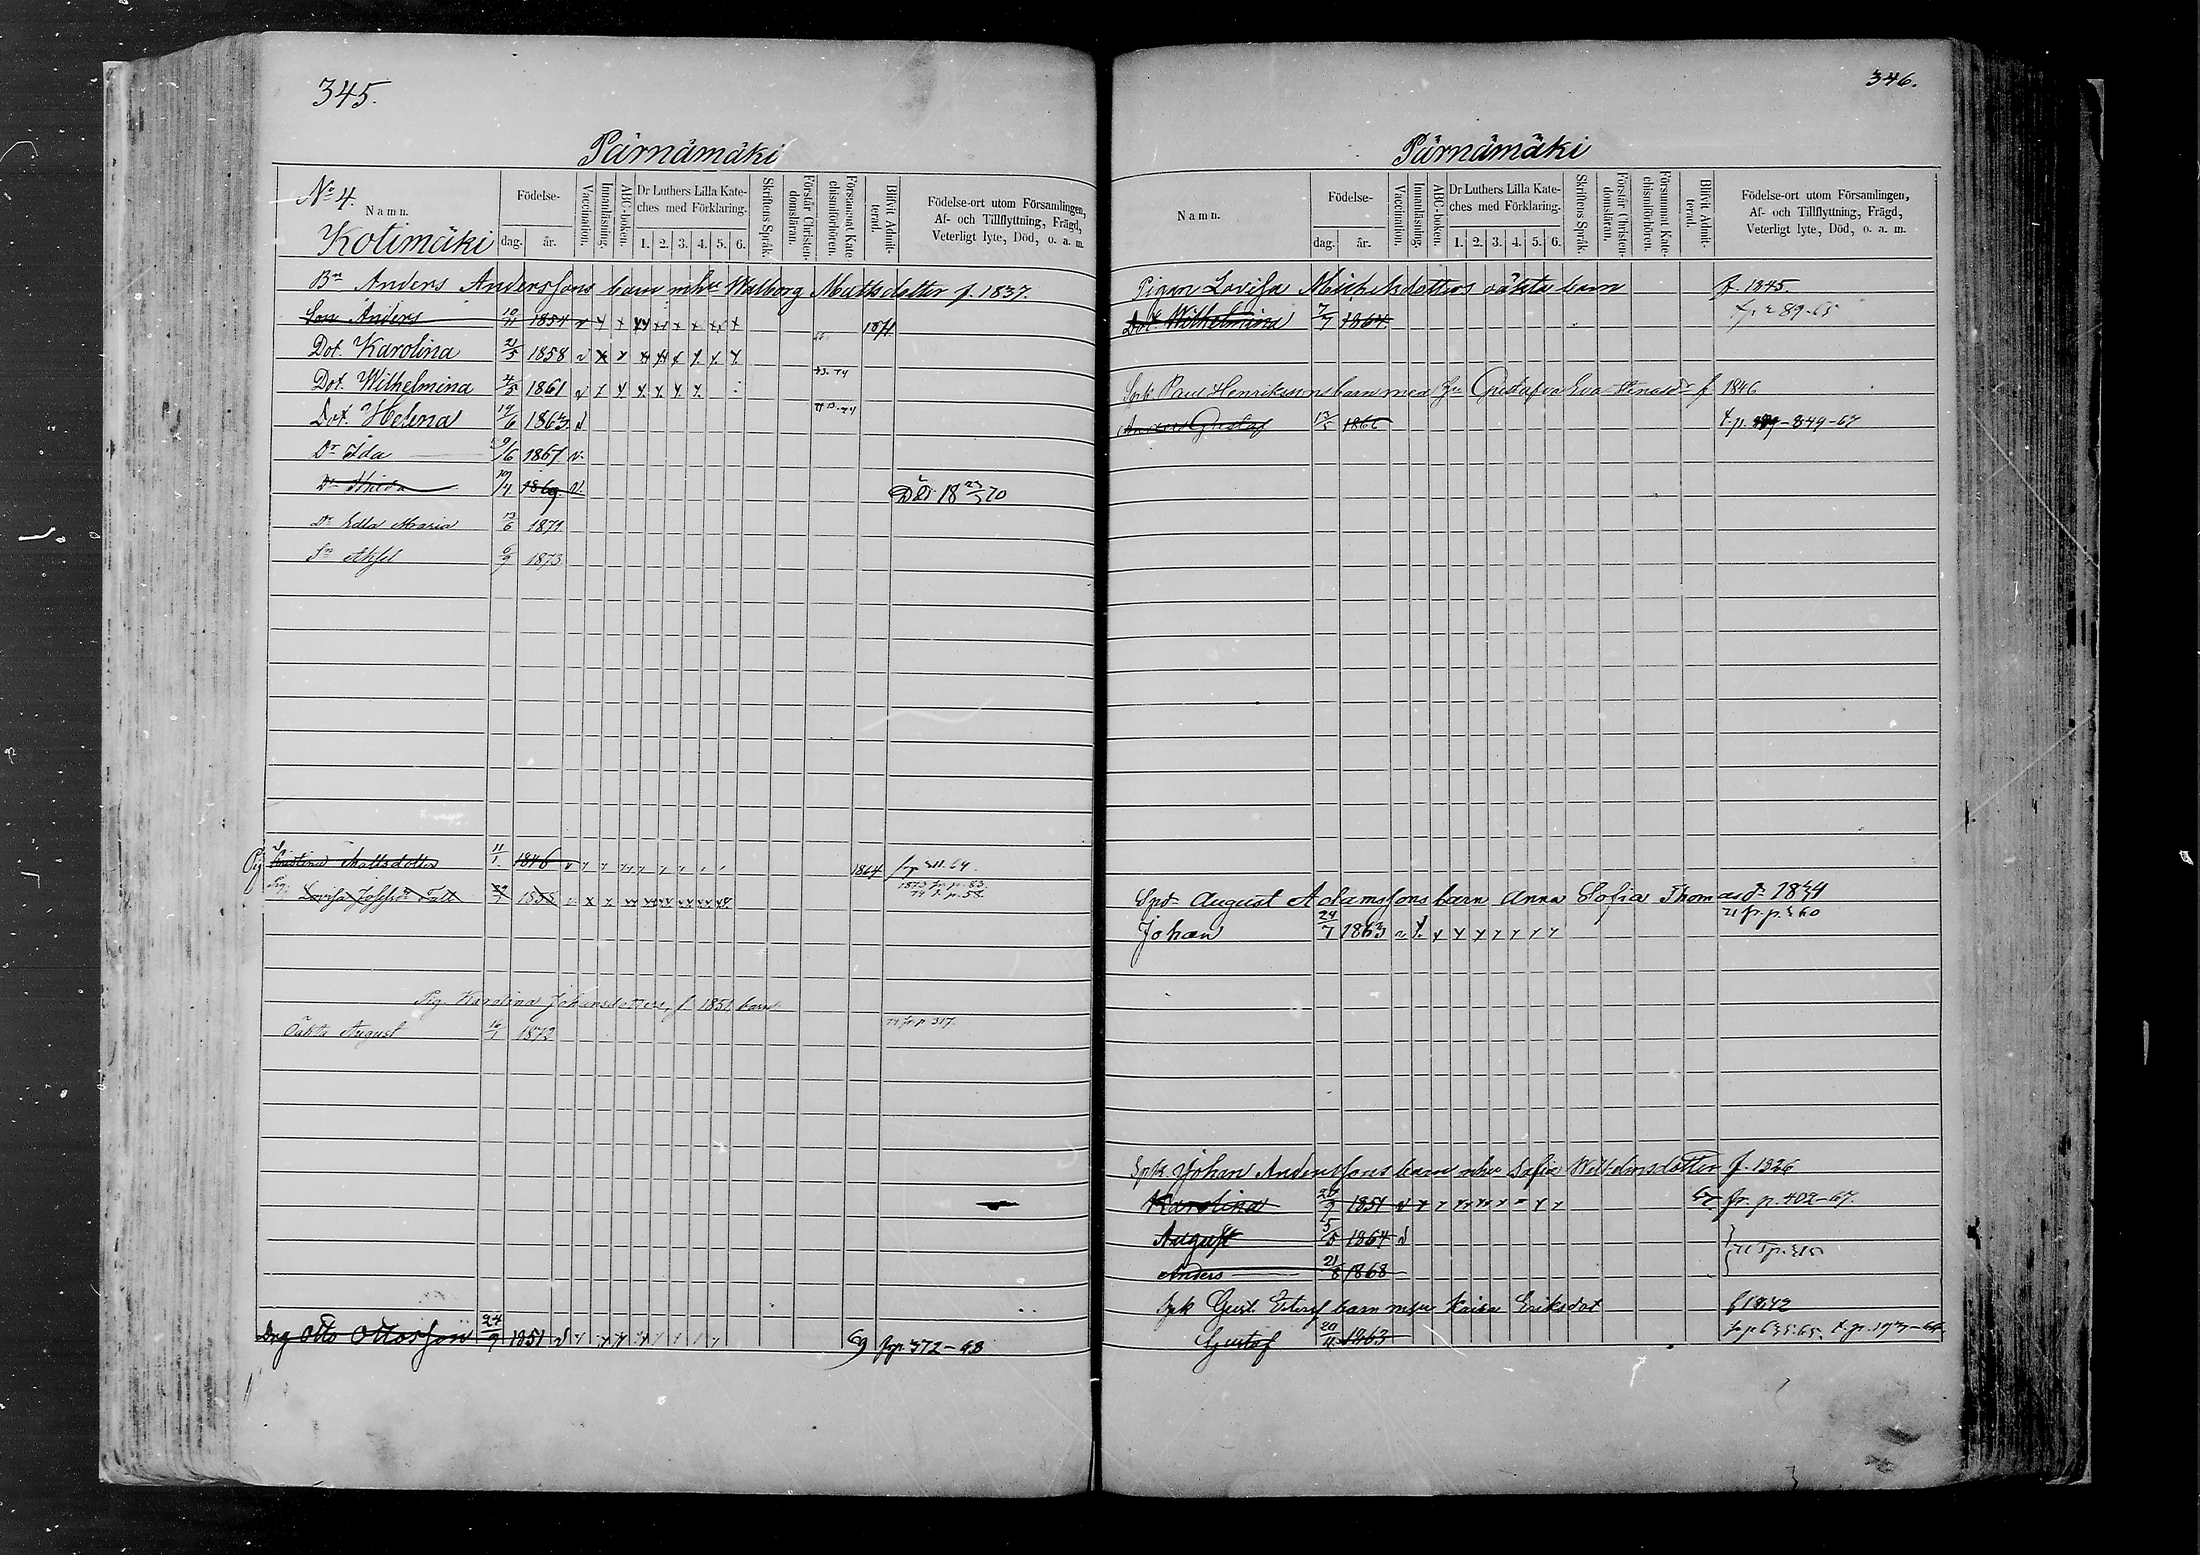 345.
Pärnämäki
No 4.
Namn.
Kotimäki
Födelse-
dag. år.
Vaccination.
Innanläsning.
ABC-boken.
Dr Luthers Lilla Kate-
ches med Förklaring.
1. 2. 3. 4. 5. 6.
Skriftens Språk.
Förstår Christen-
domsläran.
Försummat Kate-
chismiförhören.
Blifvit Admit-
terad.
Födelse-ort utom Församlingen,
Af- och Tillflyttning, Frägd,
Veterligt lyte, Död, o. a. m.
Bn Anders Anderssons barn mhu Walborg Mattsdotter f. 1837.
Son Anders 10/11 1854 v x x xx xx x x xx x 1871
Dot. Karolina 21/5 1858 v x x xx xx x x x x
Dot. Wilhelmina 4/5 1861 v x x x x x x 73. 74
Dot. Helena 19/6 1863 v 74
Dr Ida 29/6 1867 v.
Dr Hilda 1869. v. Död 18 23/5 70
Dr Edla Maria 13/6 1871
Sn Aksel 6/9 1873
Pig Kristina Mattsdotter 11/1. 1846 v 1864 fr p 311. 69
Pig. Lovisa Josefsdr Fält 1858 v x x xx xx xx xx xx 1873 fr. p. 83.
74 t. p. 58.
Pig. Karolina Johansdotters, f. 1851, barn
Oäkta August 16/1 1872 74 fr. p 317.
Drg Otto Ottosson 24/9 1851 v 69 frp. 372-68
346.
Pärnämäki
Namn.
Födelse-
dag. år.
Vaccination.
Innanläsning.
ABC-boken.
Dr Luthers Lilla Kate-
ches med Förklaring.
1. 2. 3. 4. 5. 6.
Skriftens Språk.
Förstår Christen-
domsläran.
Försummat Kate-
chismiförhören.
Blifvit Admit-
terad.
Födelse-ort utom Församlingen,
Af- och Tillflyttning, Frägd,
Veterligt lyte, Död, o. a. m.
Pigan Lovisa Michelsdotters oäkta barn f. 1845
Dot. Wilhelmina 7/7 1864 89-65
Spk Paul Henrikssons barn med Gustafva Eva f 1846
Anders Gustaf 1866 t.p. 849-67
Spd August Adamssons barn Anna Sofia Thomasdr 1834
71 fr. p. 360
Johan 24/7 1863 v x. x x x x x x x
Spk Johan Anderssons barn mhu Sofia Wilhelmsdotter f. 1826
Karolina 28/9 1851 v 67 fr. p. 402-67.
August 5/5 1864 v
Anders 21/8 1868
Spk Gust. barn mhu Kaisa Eriksdot f 1842
Gustaf 20/11 1863 fr p 635.65. t. p. 193-66.